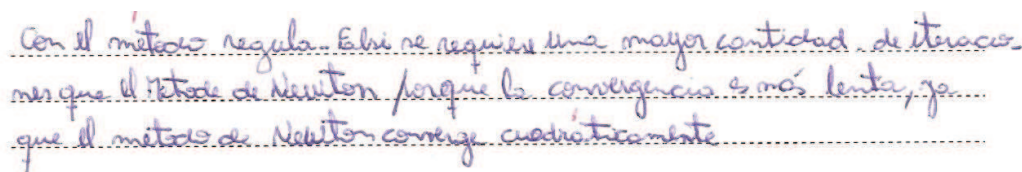 Con el método regula-Falsi se requiere una mayor cantidad de iteracio-
nes que el Metodo de Newton porque la convergencia es más lenta, ya
que el método de Newton converge cuadráticamente